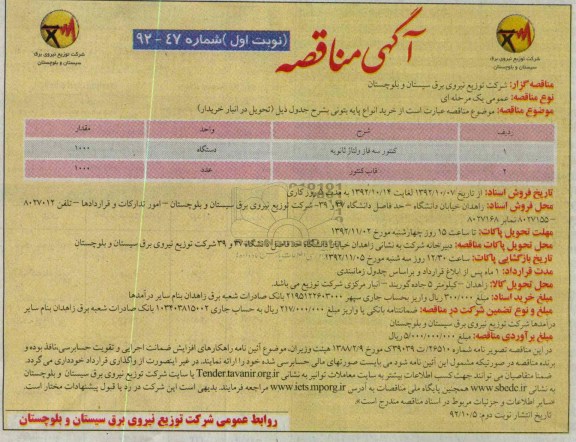 آگهی مناقصه
(نوبت اول) شماره ۴۷ - ۹۲
شرکت توزیع نیروی برق
سیستان و بلوچستان
شرکت توزیع نیروی برق
سیستان و بلوچستان
مناقصه گزار: شرکت توزیع نیروی برق سیستان و بلوچستان
نوع مناقصه: عمومی یک مرحله ای
موضوع مناقصه: موضوع مناقصه عبارت است از خرید انواع پایه بتونی بشرح جدول ذیل (تحویل در انبار خریدار)
ردیف شرح واحد مقدار
۱ کنتور سه فاز ولتاژ ثانویه دستگاه ۱۰۰۰
۲ قاب کنتور عدد ۱۰۰۰
تاریخ فروش اسناد: از تاریخ ۱۳۹۲/۱۰/۰۷ لغایت ۱۳۹۲/۱۰/۱۴ به مدت روز کاری
محل فروش اسناد: زاهدان خیابان دانشگاه - حد فاصل دانشگاه ۳۷ و ۳۹- شرکت توزیع نیروی برق سیستان و بلوچستان - امور تدارکات و قراردادها - تلفن ۸۰۲۷۰۱۲
۸۰۲۷۱۵۵- نمابر ۸۰۲۷۱۶۸
مهلت تحویل پاکات: تا ساعت ۱۵ روز چهارشنبه مورخ ۱۳۹۲/۱۱/۰۲
محل تحویل پاکات مناقصه: دبیرخانه شرکت به نشانی زاهدان خیابان دانشگاه حد فاصل دانشگاه ۳۷ و ۳۹ شرکت توزیع نیروی برق سیستان و بلوچستان
تاریخ بازگشایی پاکات: ساعت ۱۲/۳۰ روز سه شنبه مورخ ۱۳۹۲/۱۱/۰۵
مدت قرارداد: ۱ ماه پس از ابلاغ قرارداد و براساس جدول زمانبندی
محل تحویل کالا: زاهدان - کیلومتر ۵ جاده گوربند - انبار مرکزی شرکت توزیع می باشد.
مبلغ خرید اسناد: مبلغ ۳۰۰/۰۰۰ ریال واریز بحساب جاری سپهر ۲۱۹۵۱۲۲۶۰۳۰۰۰ بانک صادرات شعبه برق زاهدان بنام سایر درآمدها
مبلغ و نوع تضمین شرکت در مناقصه: ضمانتنامه بانکی یا واریز مبلغ ۲۱۷/۰۰۰/۰۰۰ ریال به حساب جاری ۱۰۳۴۰۳۸۱۵۰۰۲ بانک صادرات شعبه برق زاهدان بنام سایر
درآمدها شرکت توزیع نیروی برق سیستان و بلوچستان
مبلغ برآوردی مناقصه: مبلغ ۵/۰۰۰/۰۰۰/۰۰۰ ریال
در این مناقصه تصویر نامه شماره ۲۶۵۱۰/ت ۳۹۰۳۹ک مورخ ۱۳۸۸/۲/۹ هیئت وزیران، موضوع آئین نامه راهکارهای افزایش ضمانت اجرایی و تقویت حسابرسی نافذ بوده و
برنده مناقصه در صورتیکه مشمول این آئین نامه شود می بایست صورتهای مالی حسابرسی شده خود را ارائه نمایند. در غیر اینصورت از واگذاری قرارداد خودداری می گردد.
ضمنا متقاضیان می توانند جهت کسب اطلاعات بیشتر به سایت معاملات توانیر به نشانی Tender.tavanir.org.ir یا سایت شرکت توزیع نیروی برق سیستان و بلوچستان
به نشانی www.sbede.ir همچنین پایگاه ملی مناقصات به آدرس www.iets.mporg.ir مراجعه فرمایند. بدیهی است این شرکت در رد یا قبول پیشنهادات مختار است.
«سایر اطلاعات و جزئیات مربوط در اسناد مناقصه مندرج است.»
تاریخ انتشار نوبت دوم: ۹۲/۱۰/۵
روابط عمومی شرکت توزیع نیروی برق سیستان و بلوچستان